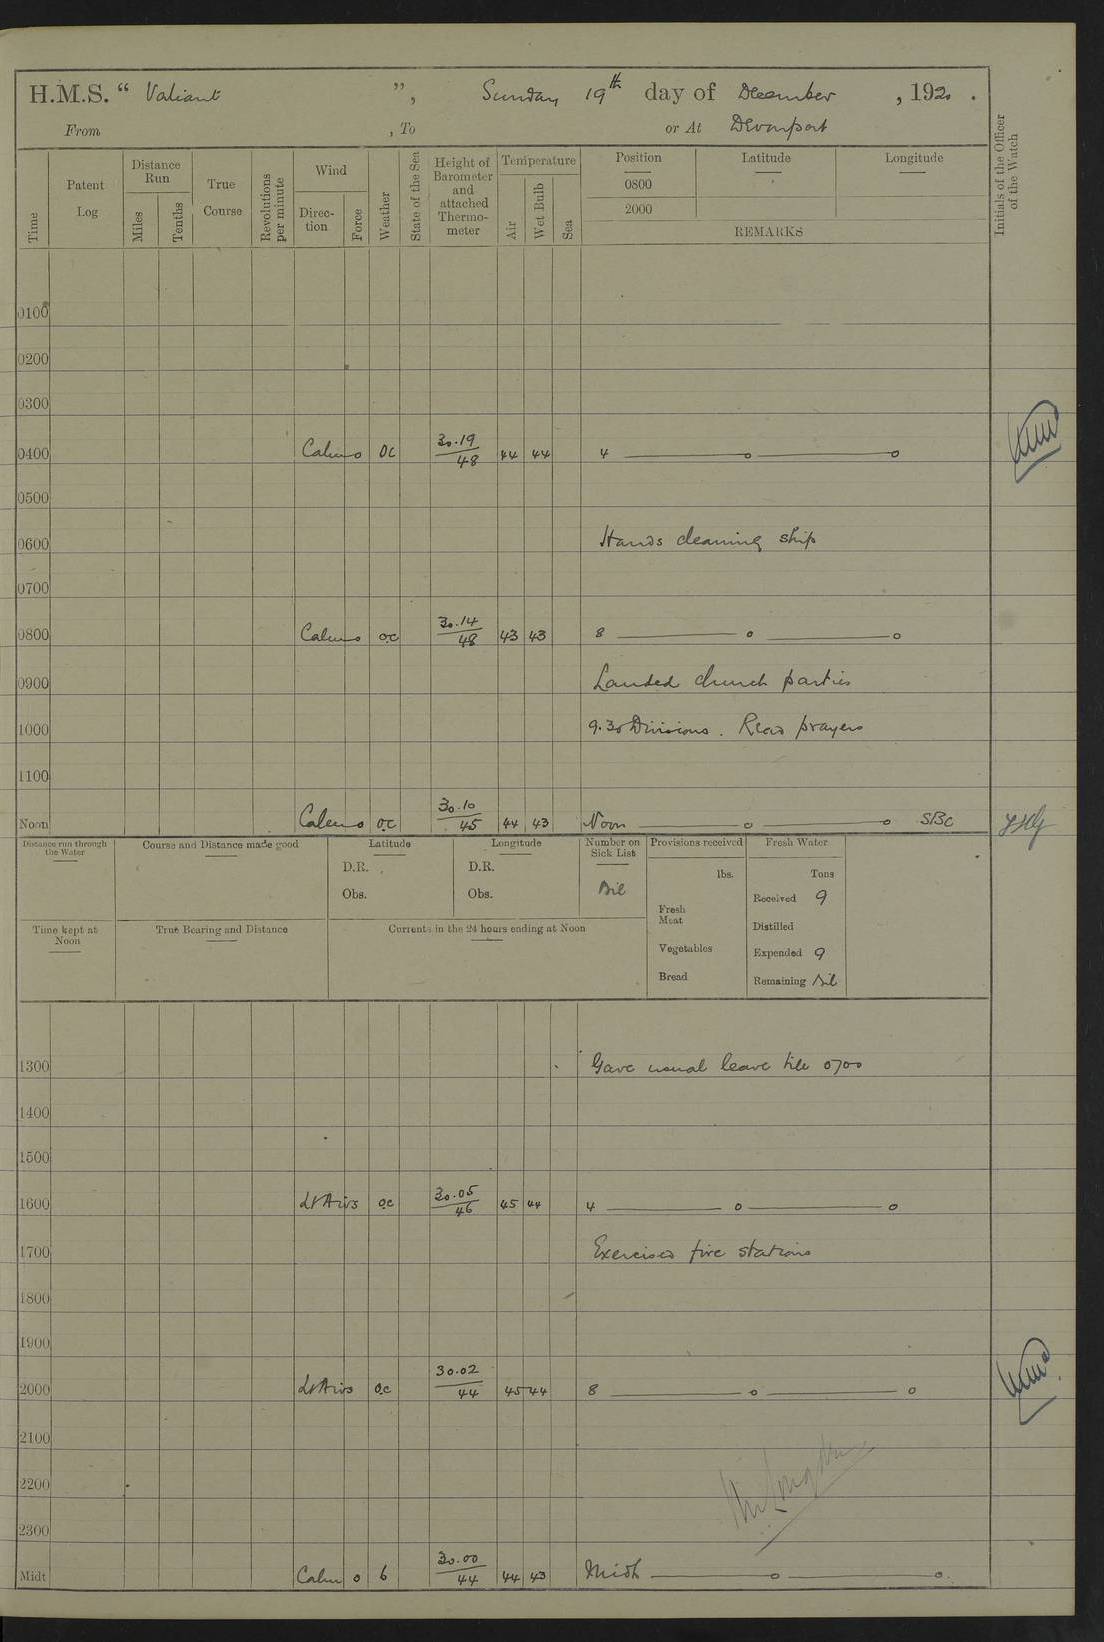 H.M.S. “ Valiant ”, Sunday 19th day of December , 1920 .
From , To or At Devonport
Time
Patent Log
Distance Run
Miles
Tenths
True Course
Revolutions per minute
Wind
Direc-tion
Force
Weather
State of the Sea
Height of Barometer and attached Thermo-meter
Temperature
Air
Wet Bulb
Sea
Position
0800
2000
Latitude
Longitude
REMARKS
Initials of the Officer of the Watch
0100
0200
0300
0400 Calm o oc 30.19 / 48 44 44 4 ——o——o
0500
0600 Hands cleaning ship
0700
0800 Calm o oc 30.14 / 48 43 43 8 ——o——o
0900 Landed church parties
1000 9.30 Divisions. Read prayers
1100
Noon Calm o oc 30.10 / 45 44 43 Noon ——o——o SBC
Distance run through the Water
Course and Distance made good
Latitude
D.R.
Obs.
Longitude
D.R.
Obs.
Number on Sick List
Nil
Provisions received
lbs.
Fresh Meat
Vegetables
Bread
Fresh Water
Tons
Received 9
Distilled
Expended 9
Remaining Nil
Time kept at Noon
True Bearing and Distance
Currents in the 24 hours ending at Noon
1300 Gave usual leave till 0700
1400
1500
1600 Lt Airs oc 30.05 / 46 45 44 4 ——o——o
1700 Exercised fire stations
1800
1900
2000 Lt Airs oc 30.02 / 44 45 44 8 ——o——o
2100
2200
2300
Midt Calm o b 30.00 / 44 44 43 Midt ——o——o